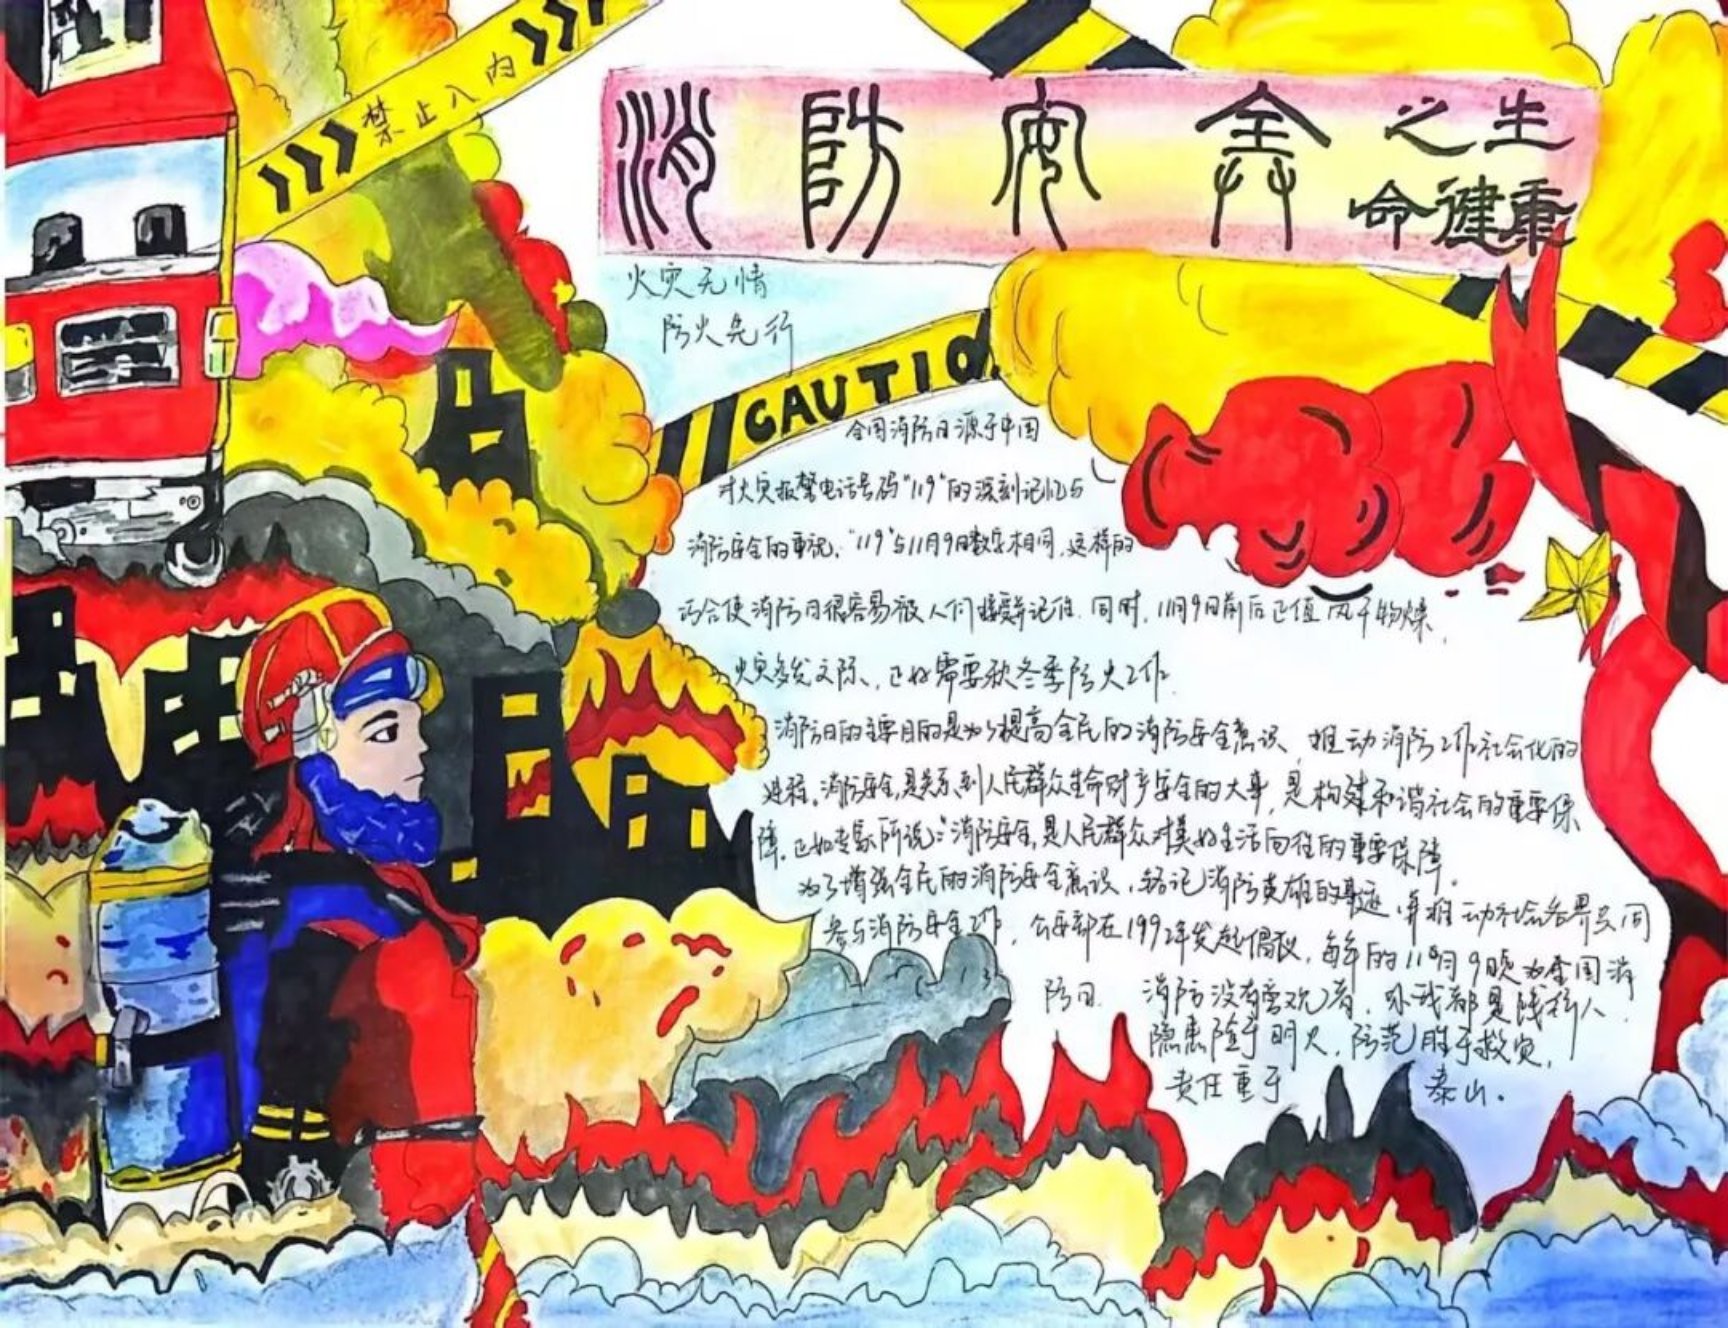 禁止入内
消防安全之生
命健康
火灾无情
防火先行
CAUTIO
全国消防日源于中国
对火灾报警电话号码"119"的深刻记忆与
消防安全的重视."119"与11月9日数字相同,这样的
巧合使消防日很容易被人们接受并记住.同时,11月9日前后正值风干物燥,
火灾多发之际,正好需要秋冬季防火工作.
消防日的主要目的是为了提高全民的消防安全意识、推动消防工作社会化的
进程.消防安全,是关系到人民群众生命财产安全的大事,是构建和谐社会的重要保
障.正如专家所说:"消防安全,是人民群众对美好生活向往的重要保障.
为了增强全民的消防安全意识,铭记消防英雄的事迹,并推动社会各界共同
参与消防安全工作,公安部在1992年发起倡议,每年的11月9日为全国消
防日. 消防没有旁观者,你我都是践行人.
隐患险于明火,防范胜于救灾,
责任重于 泰山.